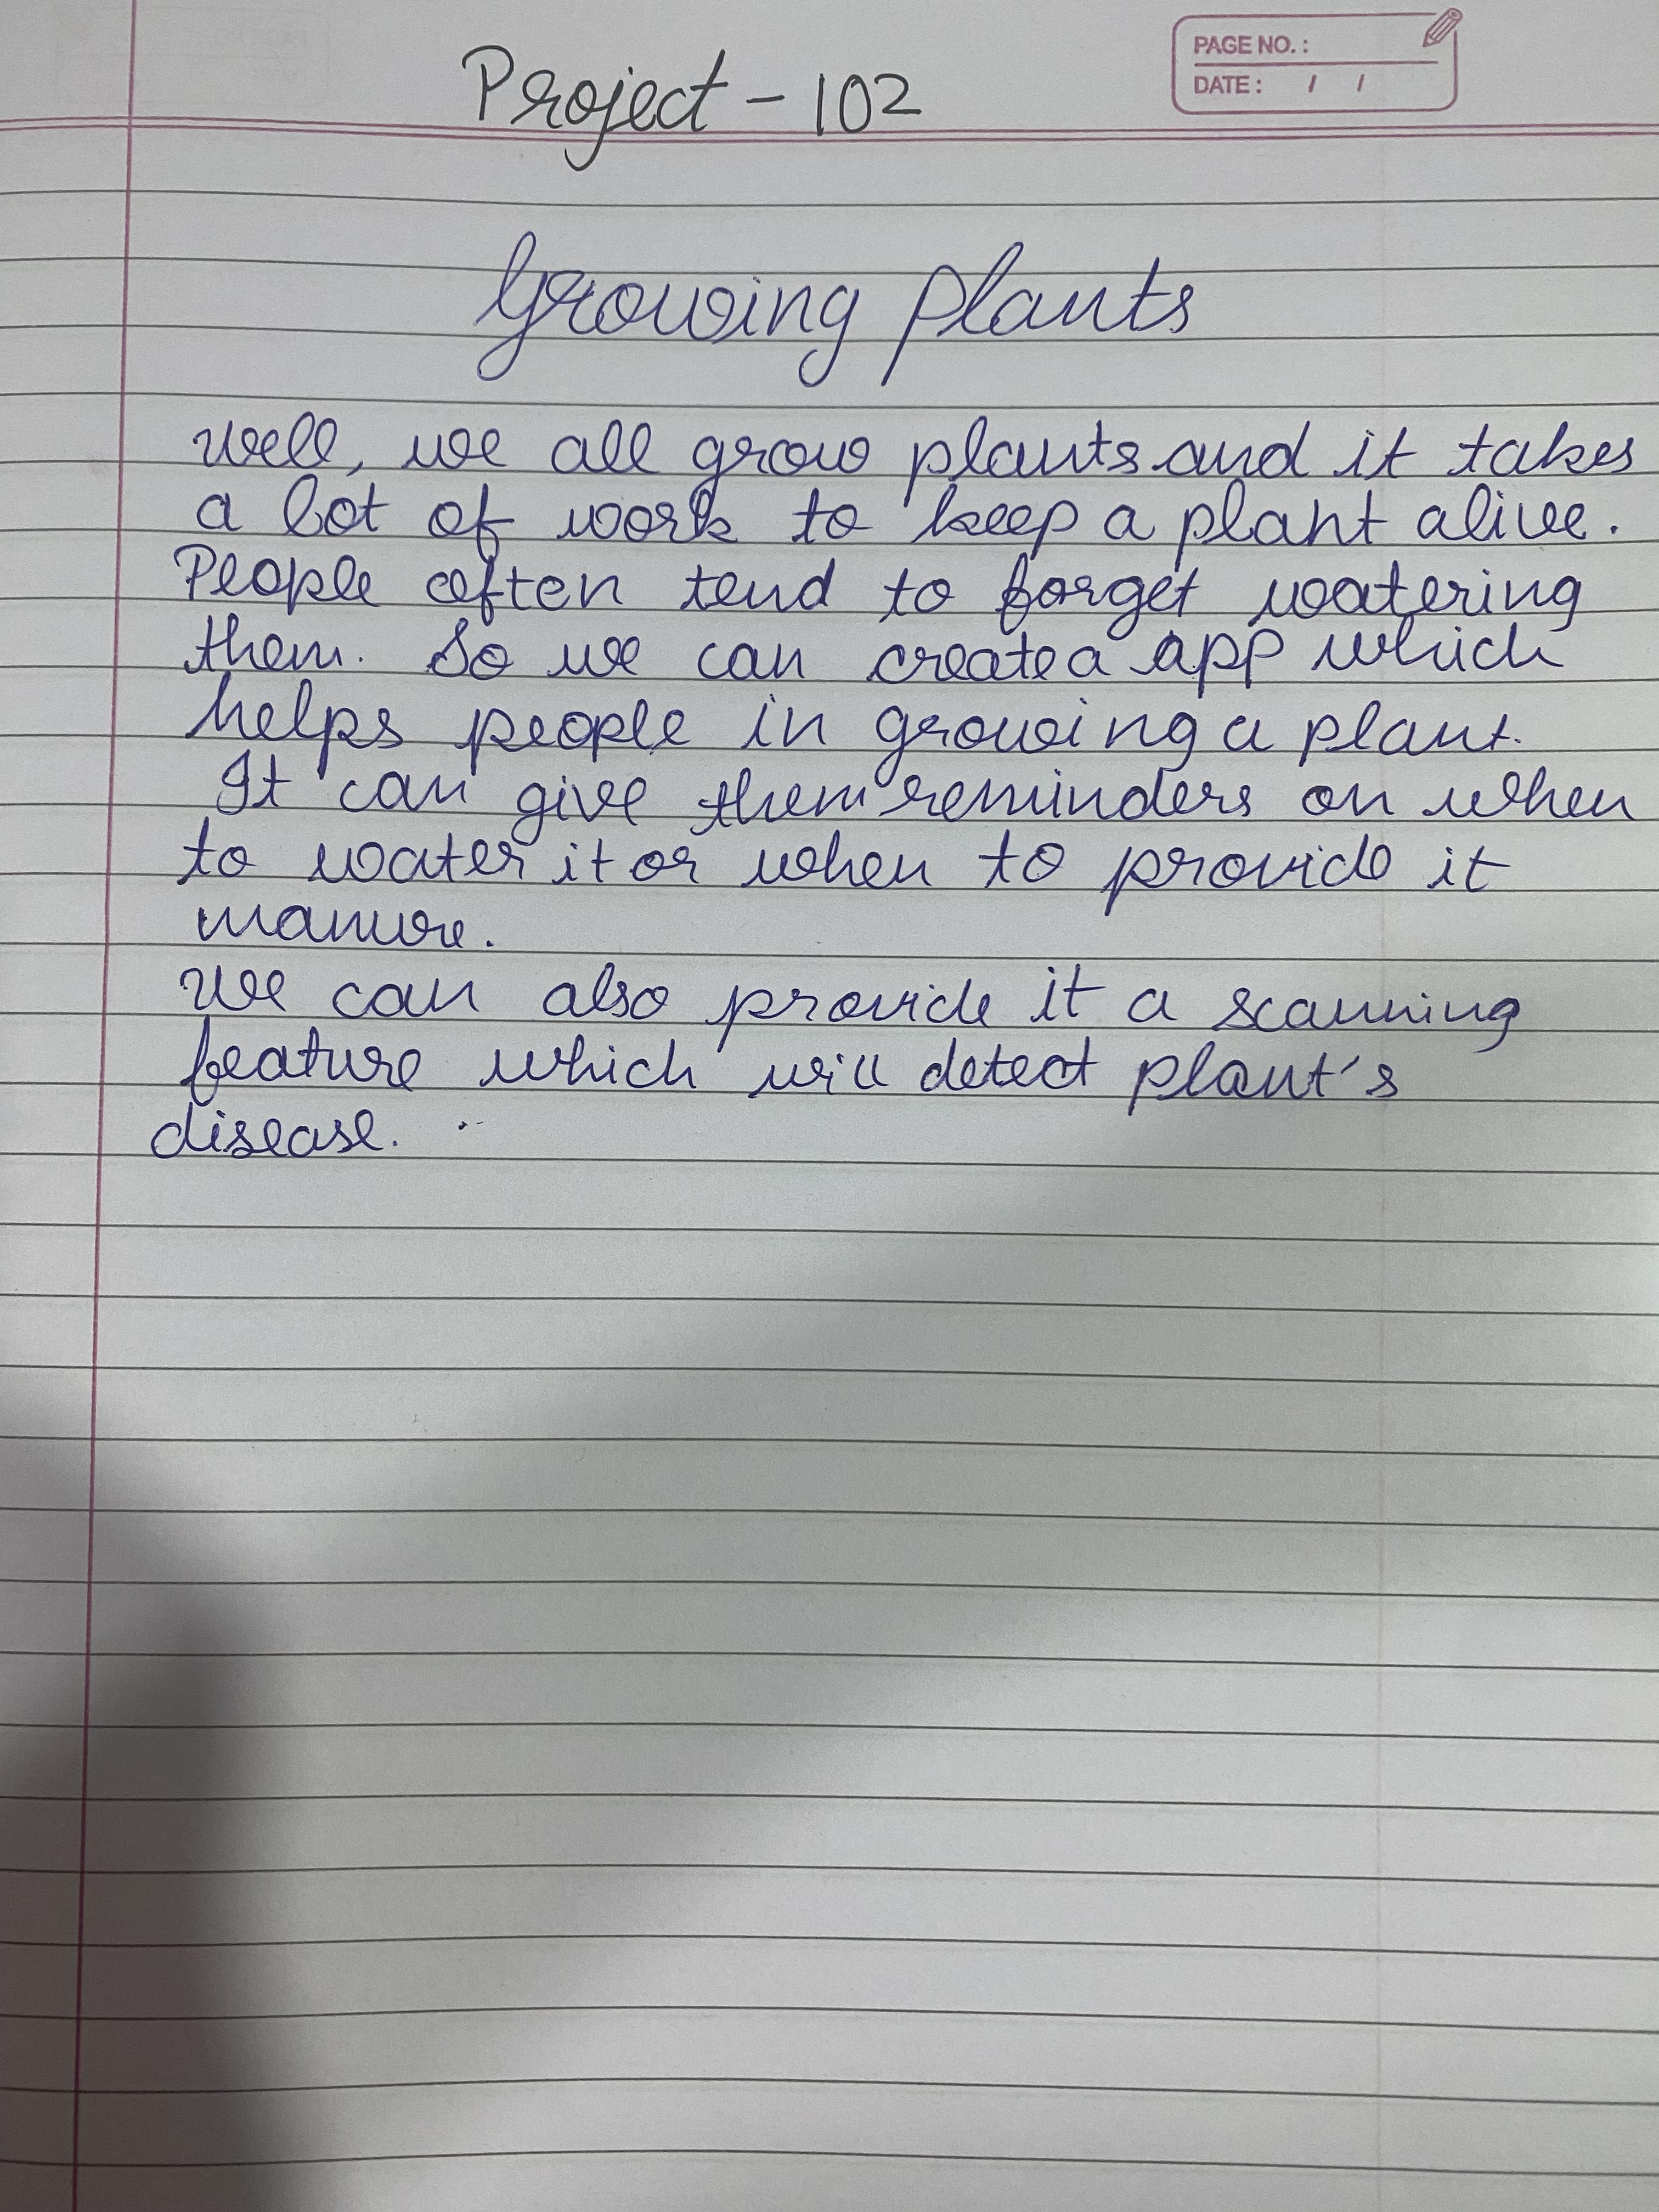 PAGE NO. :
DATE : / /
Project - 102
Growing plants
Well, we all grow plants and it takes
a lot of work to keep a plant alive.
People often tend to forget watering
them. So we can create a app which
helps people in growing a plant.
It can give them reminders on when
to water it or when to provide it
manure.
We can also provide it a scanning
feature which will detect plant's
disease.